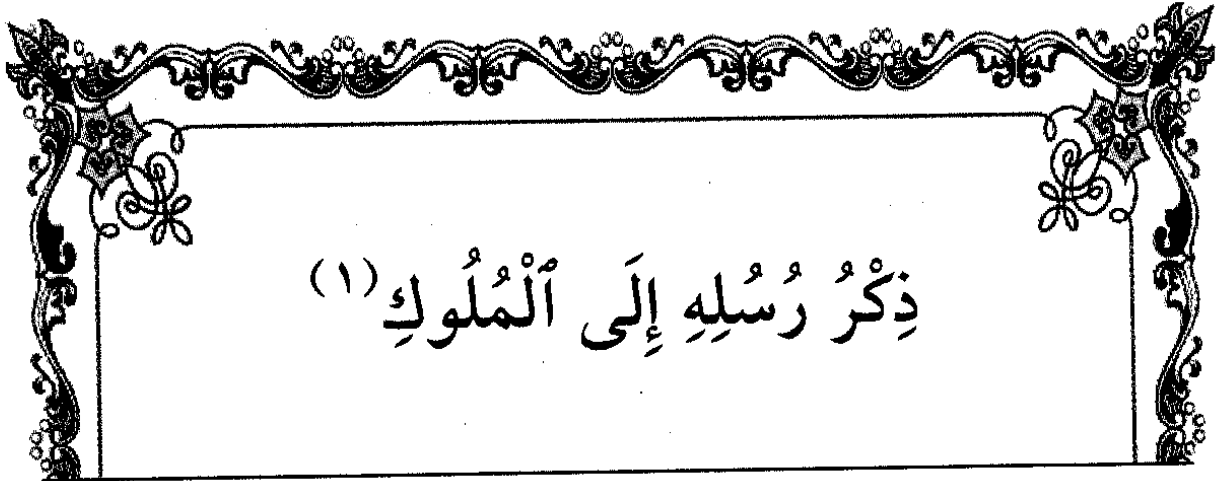 ذِكْرُ رُسُلِهِ إِلَى ٱلْمُلُوكِ(١)